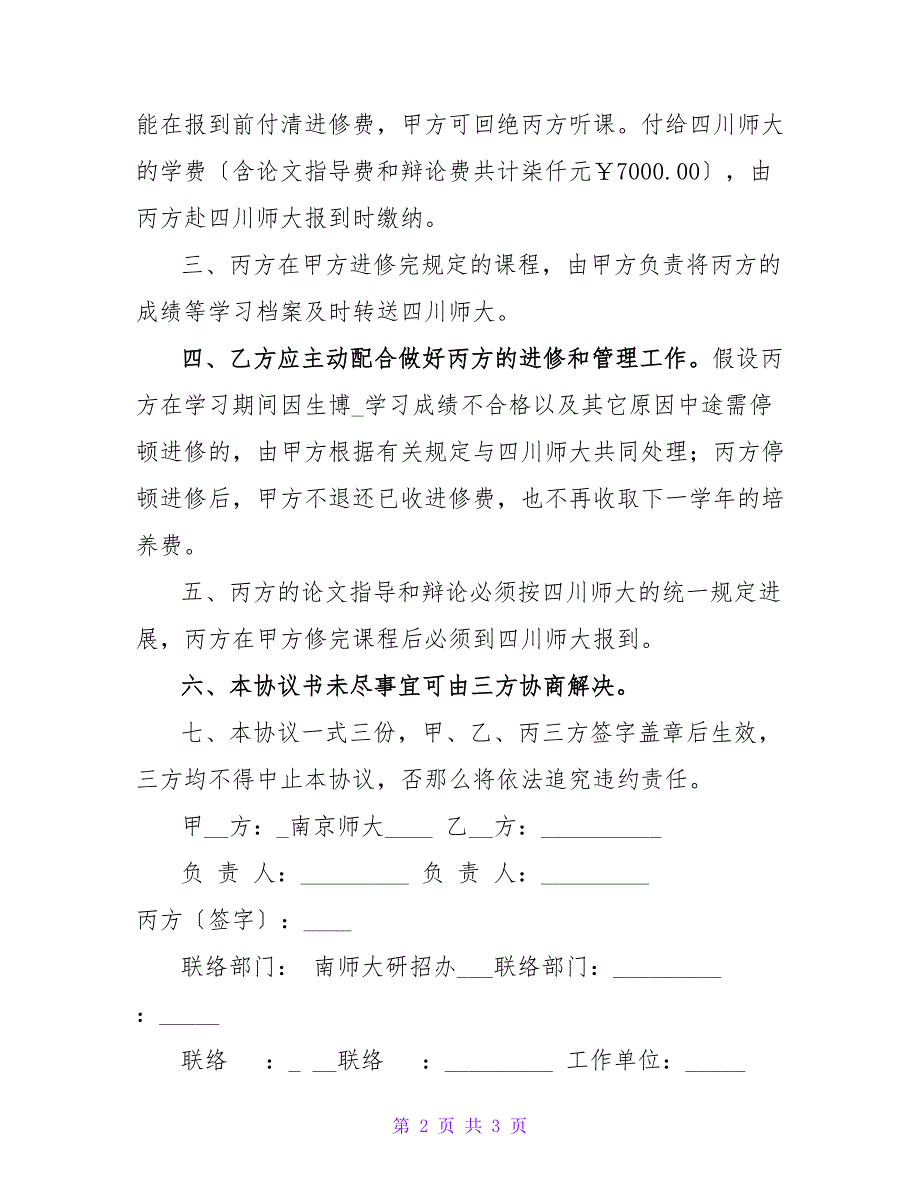 能在报到前付清进修费，甲方可回绝丙方听课。付给四川师大
的学费〔含论文指导费和辩论费共计柒仟元￥7000.00〕，由
丙方赴四川师大报到时缴纳。
三、丙方在甲方进修完规定的课程，由甲方负责将丙方的
成绩等学习档案及时转送四川师大。
四、乙方应主动配合做好丙方的进修和管理工作。假设丙
方在学习期间因生博_学习成绩不合格以及其它原因中途需停
顿进修的，由甲方根据有关规定与四川师大共同处理；丙方停
顿进修后，甲方不退还已收进修费，也不再收取下一学年的培
养费。
五、丙方的论文指导和辩论必须按四川师大的统一规定进
展，丙方在甲方修完课程后必须到四川师大报到。
六、本协议书未尽事宜可由三方协商解决。
七、本协议一式三份，甲、乙、丙三方签字盖章后生效，
三方均不得中止本协议，否那么将依法追究违约责任。
甲__方：_南京师大____ 乙__方：__________
负 责 人：_________ 负 责 人：_________
丙方〔签字〕：____
联络部门： 南师大研招办___联络部门：_________
：_____
联络 ：_ __联络 ：_________ 工作单位：_____
第 2 页 共 3 页